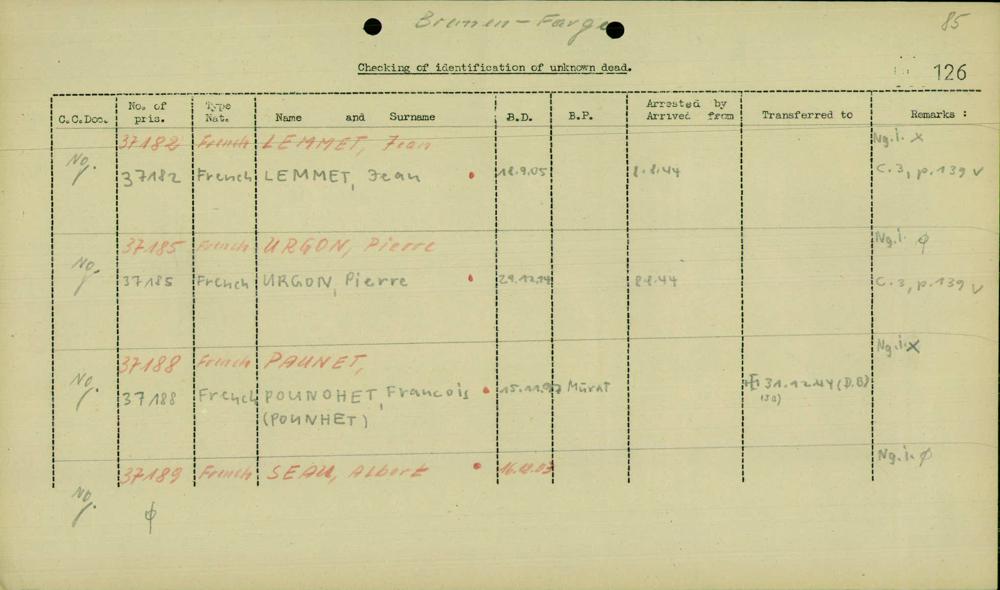 Bremen-Farge
85
Checking of identification of unknown dead.
126
C.C.Doc. No. of pris. Type Nat. Name and Surname B.D. B.P. Arrested by Arrived from Transferred to Remarks :
37182 French LEMMET, Jean Ng.i. x
No. 37182 French LEMMET, Jean 18.9.05 8.8.44 C.3, p.139 v
37185 French URGON, Pierre Ng.i. ϕ
No. 37185 French URGON, Pierre 29.12.14 8.8.44 C.3, p.139 v
37188 French PAUNET, Ng.i. x
No. 37188 French POUNOHET, Francois 15.11.97 Mürat 31.12.44 (D.B)
(POUNHET)
37189 French SEAU, Albert Ng.i. ϕ
No. ϕ